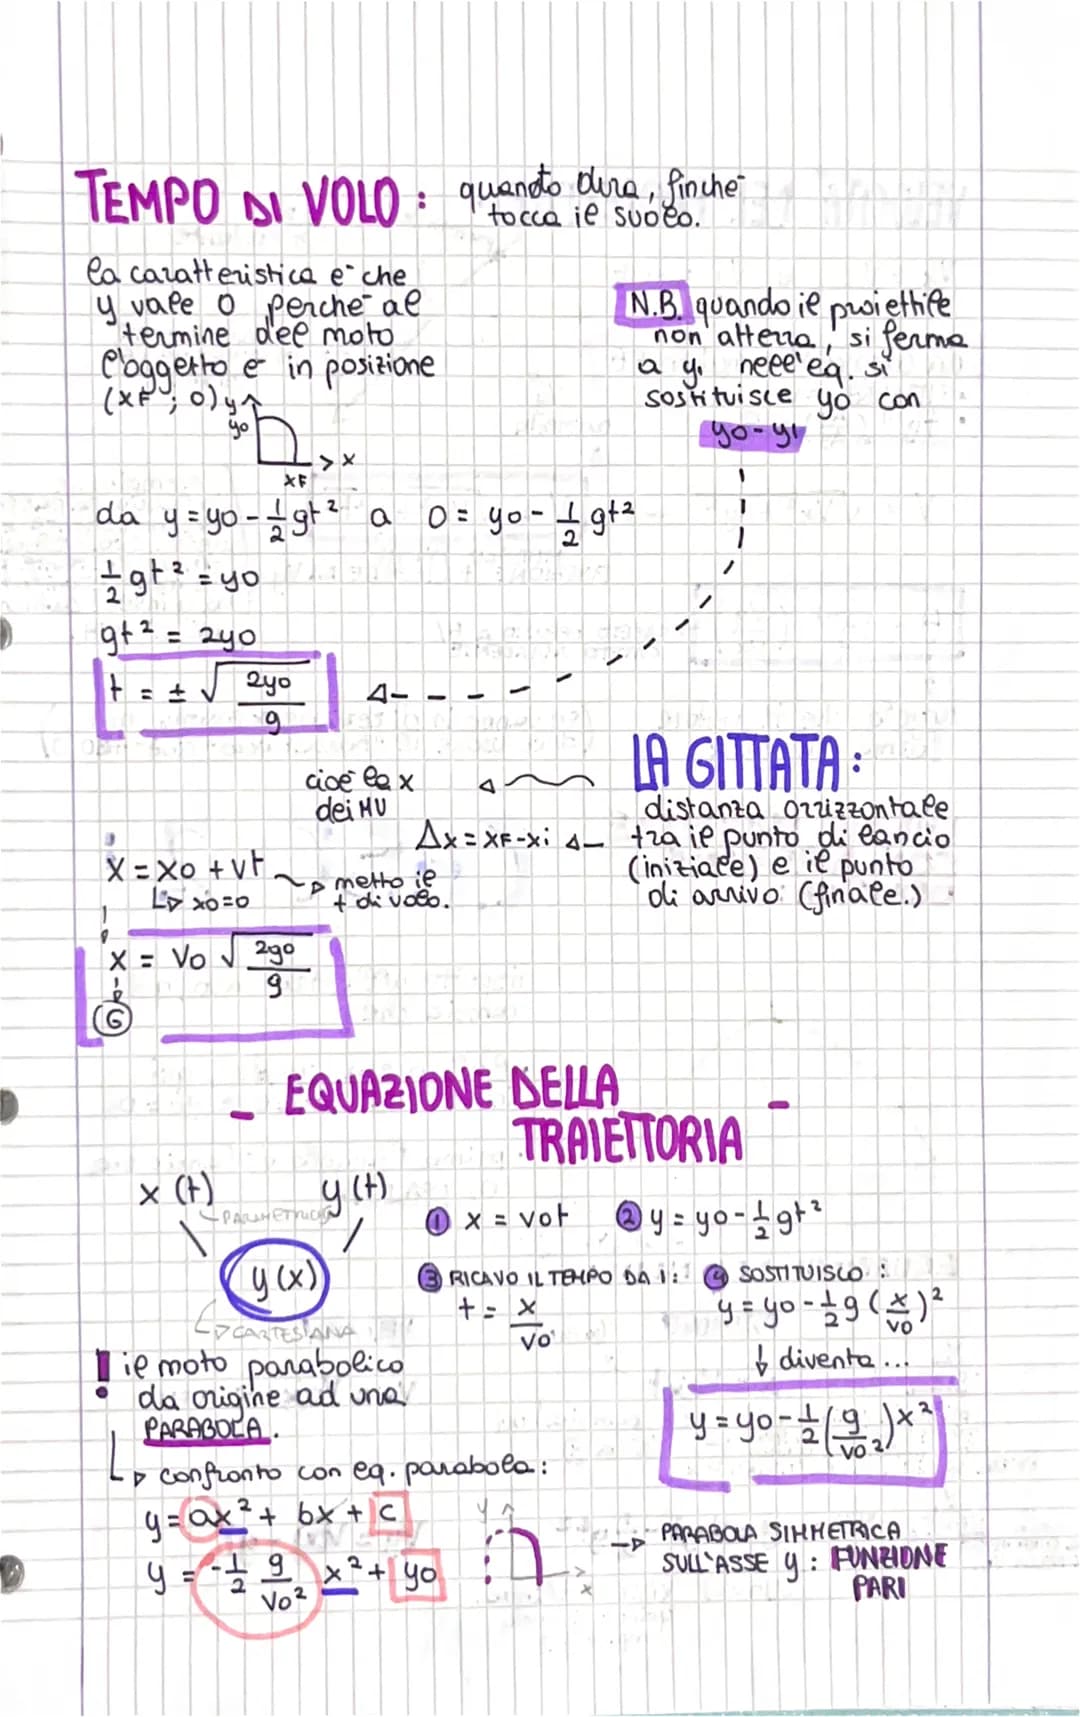 TEMPO DI VOLO : quando dura, finchè
tocca il suolo.
la caratteristica è che
y vale 0 perchè al
termine del moto
l'oggetto è in posizione
(xF ; 0)
y
yo
x
XF
N.B. quando il proiettile
non atterra, si ferma
a y₁ nell'eq. si
sostituisce yo con
yo-y₁
da y = yo - 1/2 gt² a 0 = yo - 1/2 gt²
1/2 gt² = yo
gt² = 2yo
t = ± √ 2yo/g
LA GITTATA :
distanza orrizzontale
tra il punto di lancio
(iniziale) e il punto
di arrivo (finale.)
cioè la x
dei MU
Δx = XF-xi
X = Xo + vt
xo=0
metto il
t di volo.
X = Vo √ 2yo/g
G
- EQUAZIONE DELLA
TRAIETTORIA -
x (t) y (t)
PARAMETRICA
y (x)
CARTESIANA
① x = vot ② y = yo - 1/2 gt²
③ RICAVO IL TEMPO DA 1:
t = x/vo
④ SOSTITUISCO :
y = yo - 1/2 g (x/vo)²
↓ diventa ...
y = yo - 1/2 (g/vo²)x²
! il moto parabolico
da origine ad una
PARABOLA.
confronto con eq. parabola :
y = ax² + bx + c
y = -1/2 g/Vo² x² + yo
y
x
PARABOLA SIMMETRICA
SULL'ASSE y : FUNZIONE
PARI